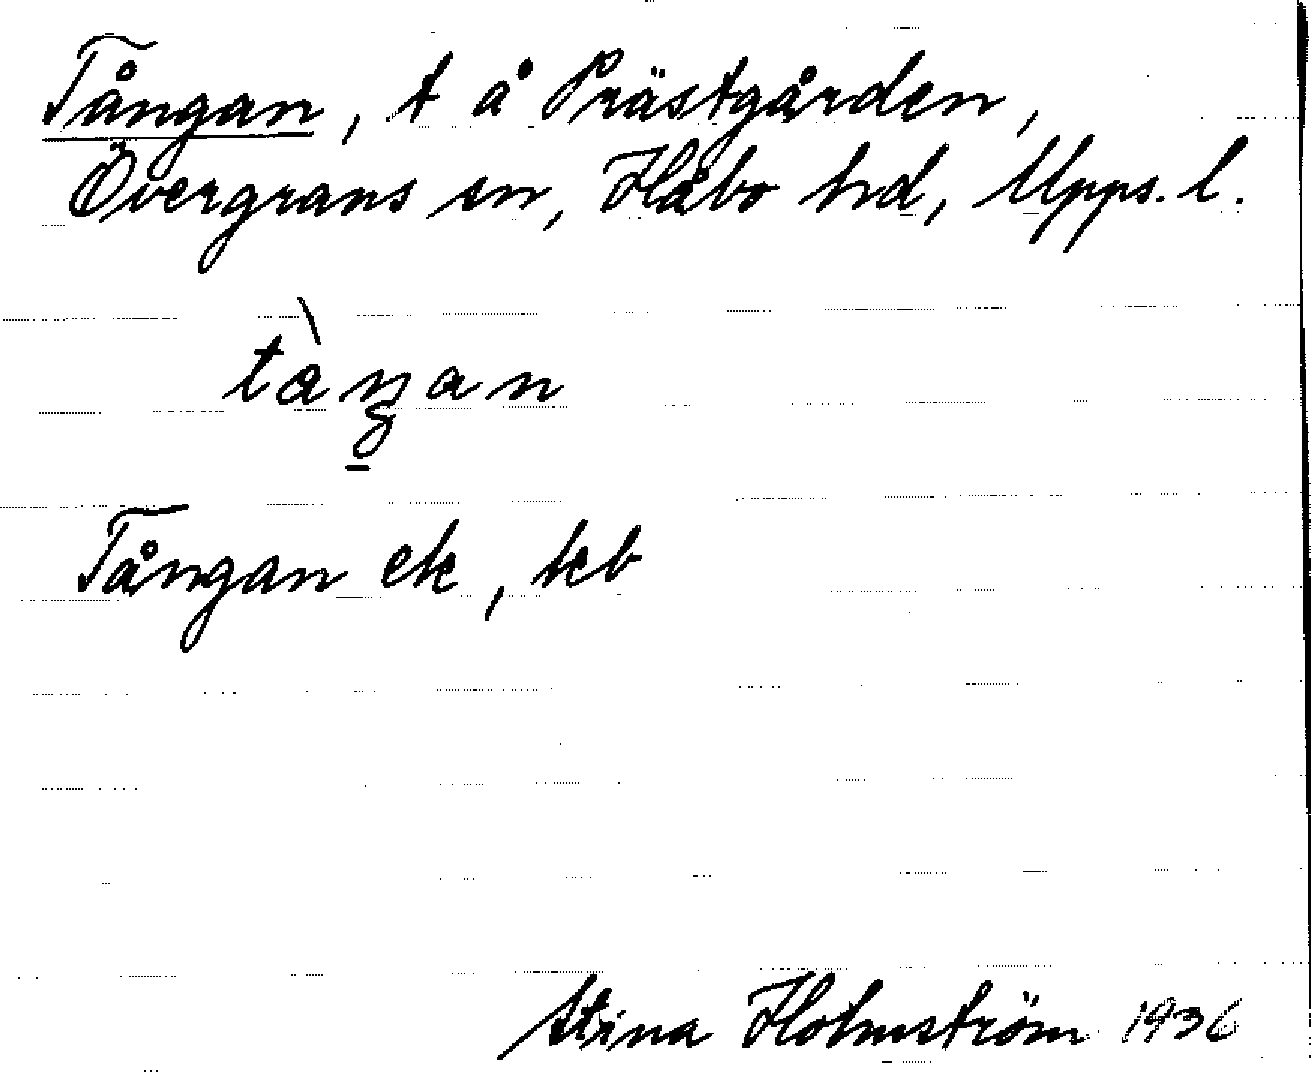 Tångan, t å Prästgården,
Övergrans sn, Håbo hd, Upps. l.
tàŋan
Tångan ek, skb
Stina Holmström 1936